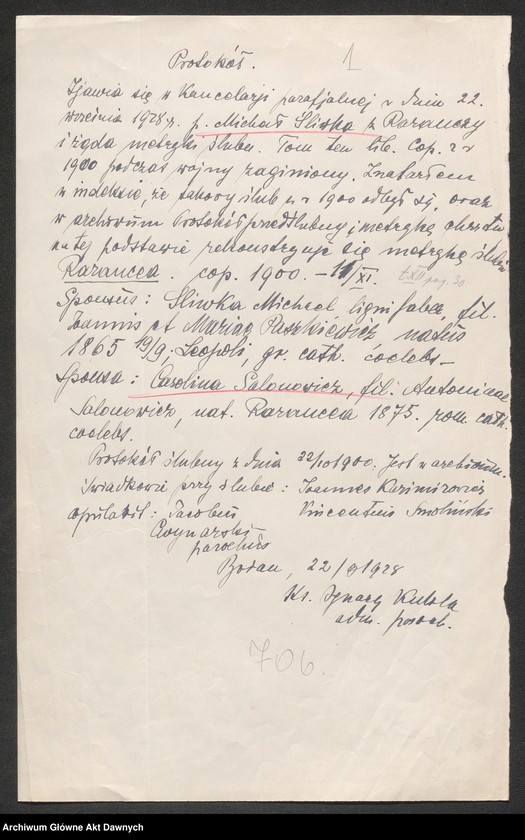 Protokół. 1
Zjawia się w Kancelarji parafjalnej w dniu 22.
września 1928 r. p. Michał Sliwka z Raranczy
i żąda metryki ślubu. Tom ten lib. Cop. z r
1900 podczas wojny zaginiony. Znalazłem
w indeksie, że takowy ślub w r 1900 odbył się, oraz
w archivum Protokół przedślubny i metrykę chrztu
na tej podstawie rekonstruuje się metrykę ślubu
Rarancea. cop. 1900. - 11/XI. pag. 30
Sponsus: Sliwka Michael, lignifaber, fil.
Joannis et Mariae Paszkiewicz natus
1865 19/9. Leopoli, gr. cath. coelebs -
Sponsa: Carolina Salonowicz, fil. Antoninae
Salonowicz, nat. Rarancea 1875. rom. cath.
coelebs.
Protokół ślubny z dnia 22/10 1900. jest w archivum.
Świadkowie przy ślubie: Joannes Kazimirowicz
Vincentius Smoliński
copulavit: Jacobus
parochus
Bojan, 22/9 1928
Ks. Ignacy Kukla
adm. paroch.
706.
Archiwum Główne Akt Dawnych